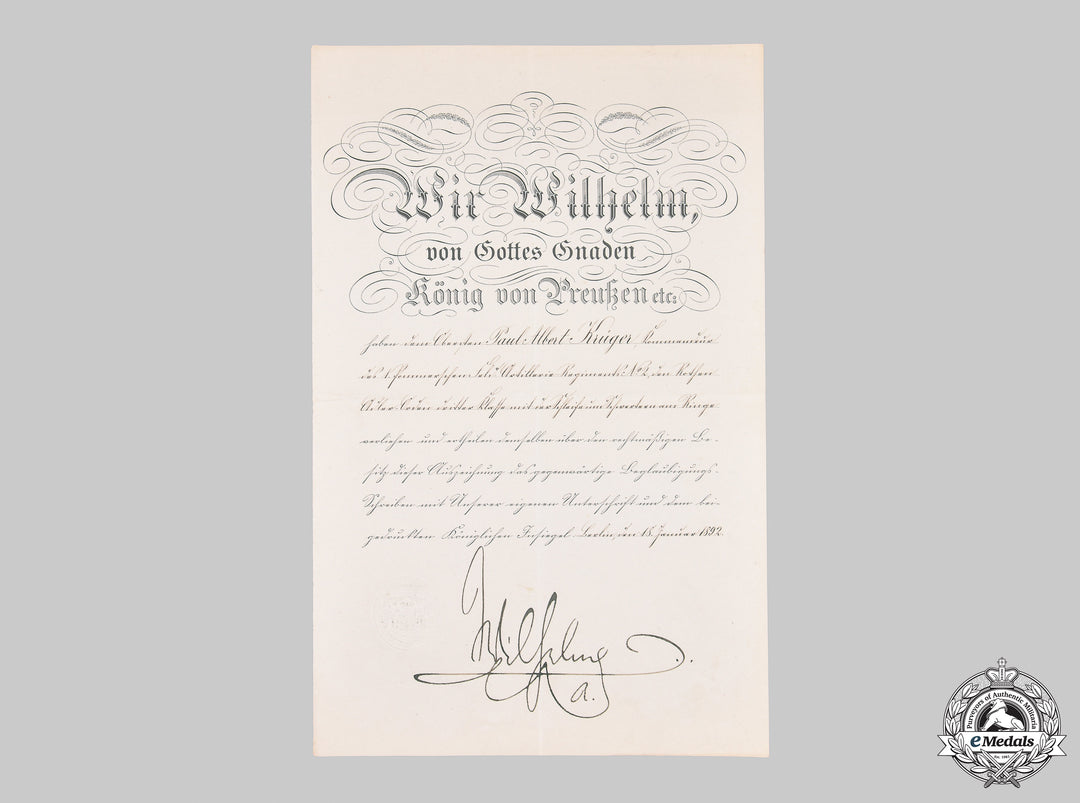 Wir Wilhelm,
von Gottes Gnaden
König von Preußen etc:
haben dem Obersten Paul Albert Krüger, Kommandeur
des 1. Pommerschen Feld Artillerie Regiments No 2, den Rothen
Adler-Orden dritter Klasse mit der Schleife und Schwertern am Ringe
verliehen und ertheilen demselben über den rechtmäßigen Be-
sitz dieser Auszeichnung das gegenwärtige Beglaubigungs-
Schreiben mit Unserer eigenen Unterschrift und dem bei-
gedruckten Königlichen Insiegel. Berlin, den 18. Januar 1892.
Wilhelm
R.
Purveyors of Authentic Militaria
eMedals